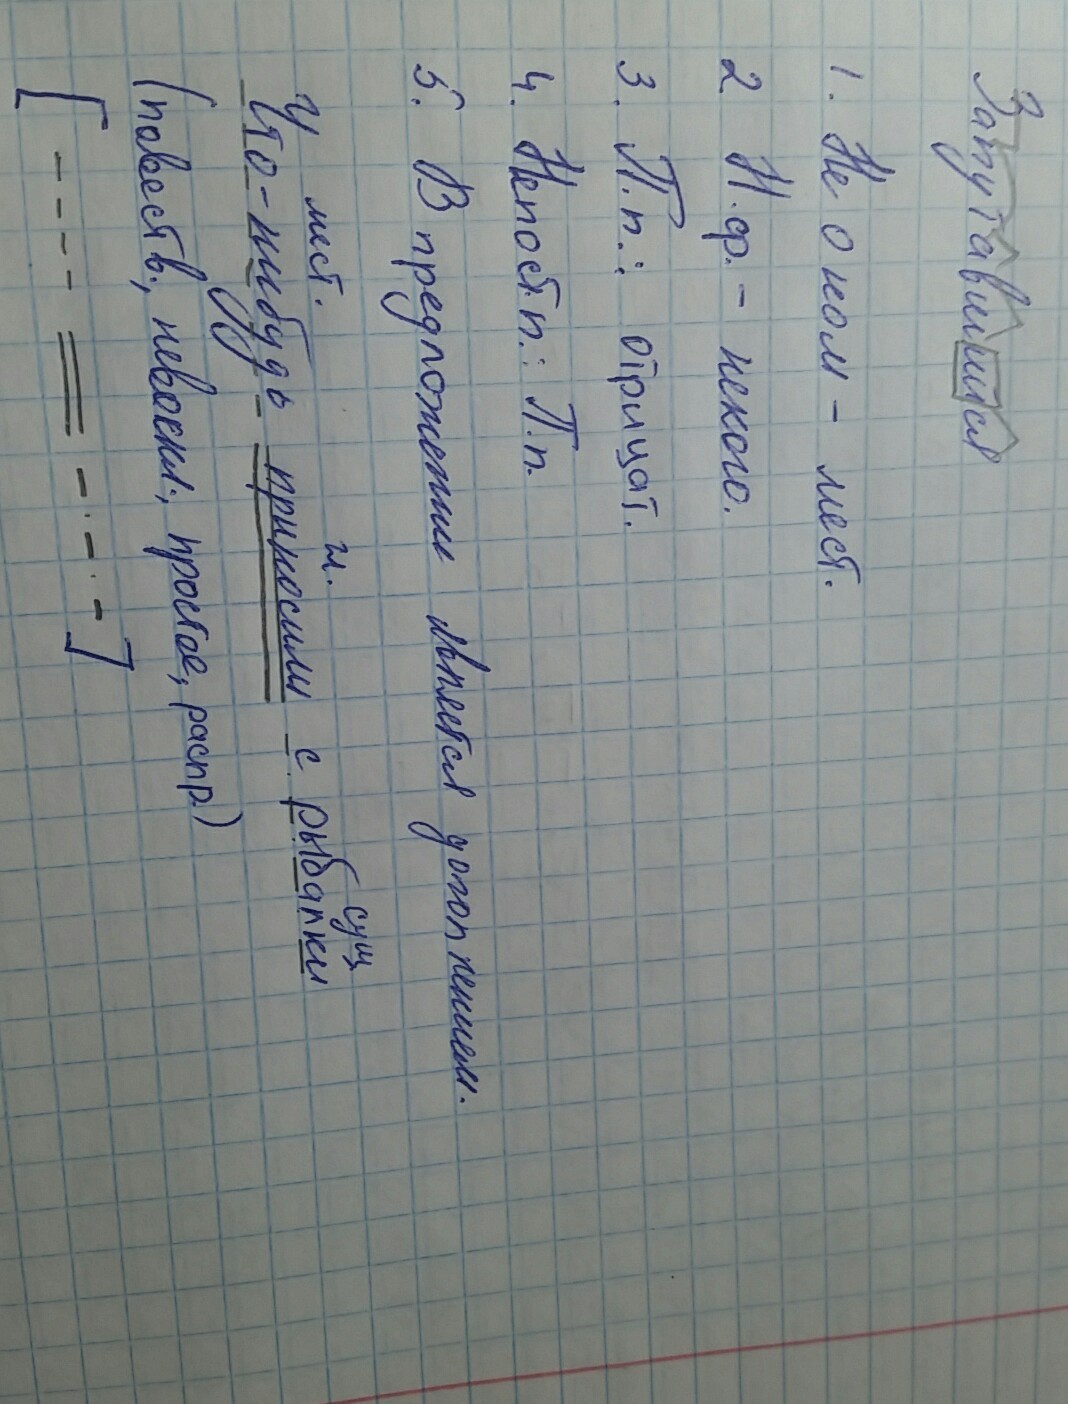 Запутавшился
1. Не о ком - мест.
2 Н.ф. - некого.
3. П.п.: отрицат.
4. Непост.п.: П.п.
5. В предложении является дополнением.
мест. гл. сущ
Что-нибудь приносили с рыбалки
(повеств., невоскл., простое, распр.)
[ - - - - = - . - . - ]